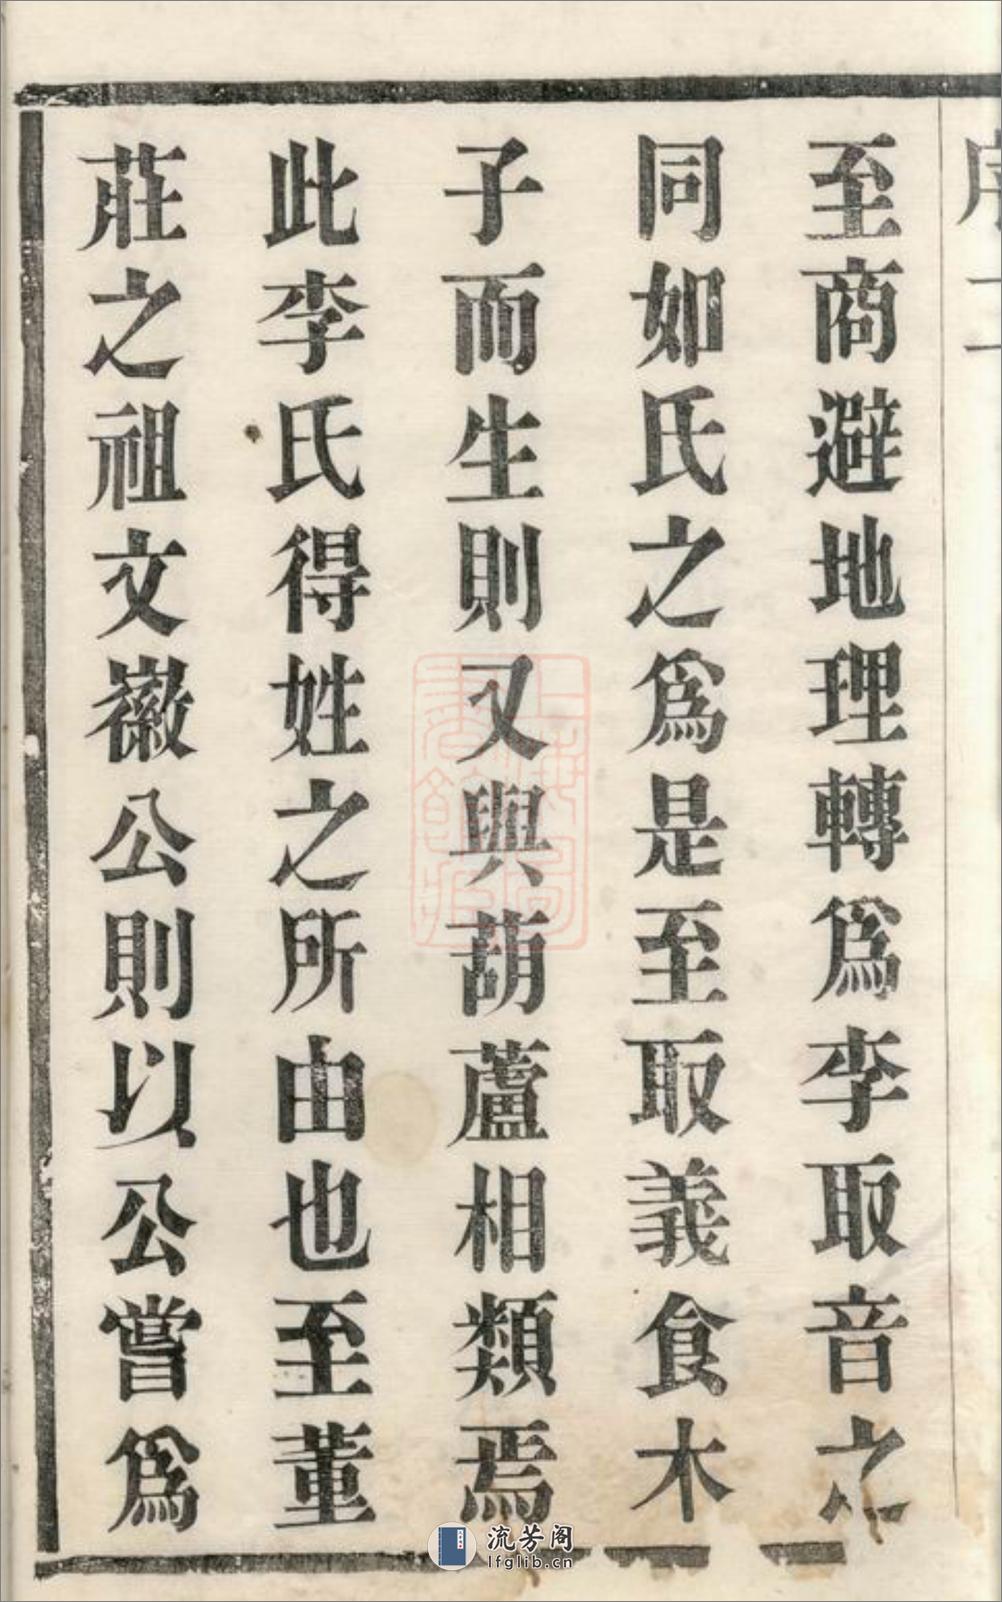 序二
至商避地理轉爲李取音之
同如氏之爲是至取義食木
子而生則又與葫蘆相類焉
此李氏得姓之所由也至董
莊之祖文徽公則以公嘗爲
流芳阁
lfglib.cn